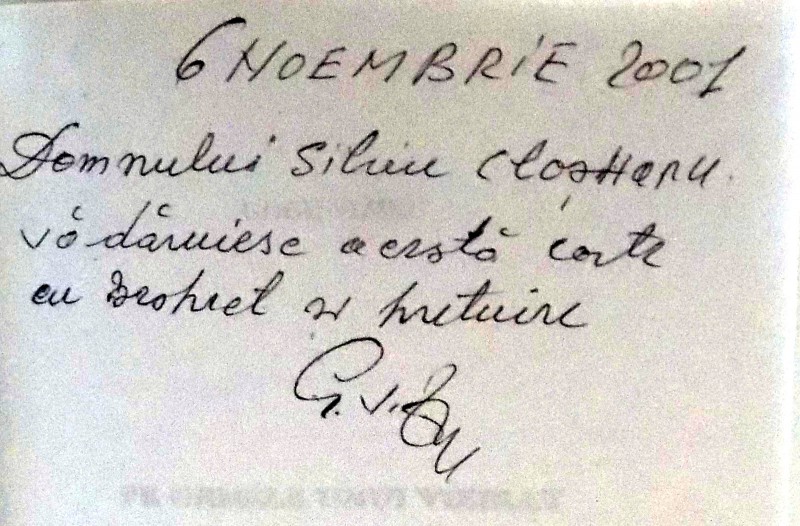 6 NOEMBRIE 2001
Domnului Silviu
vă dăruiesc această carte
cu respect și prețuire
G. V.